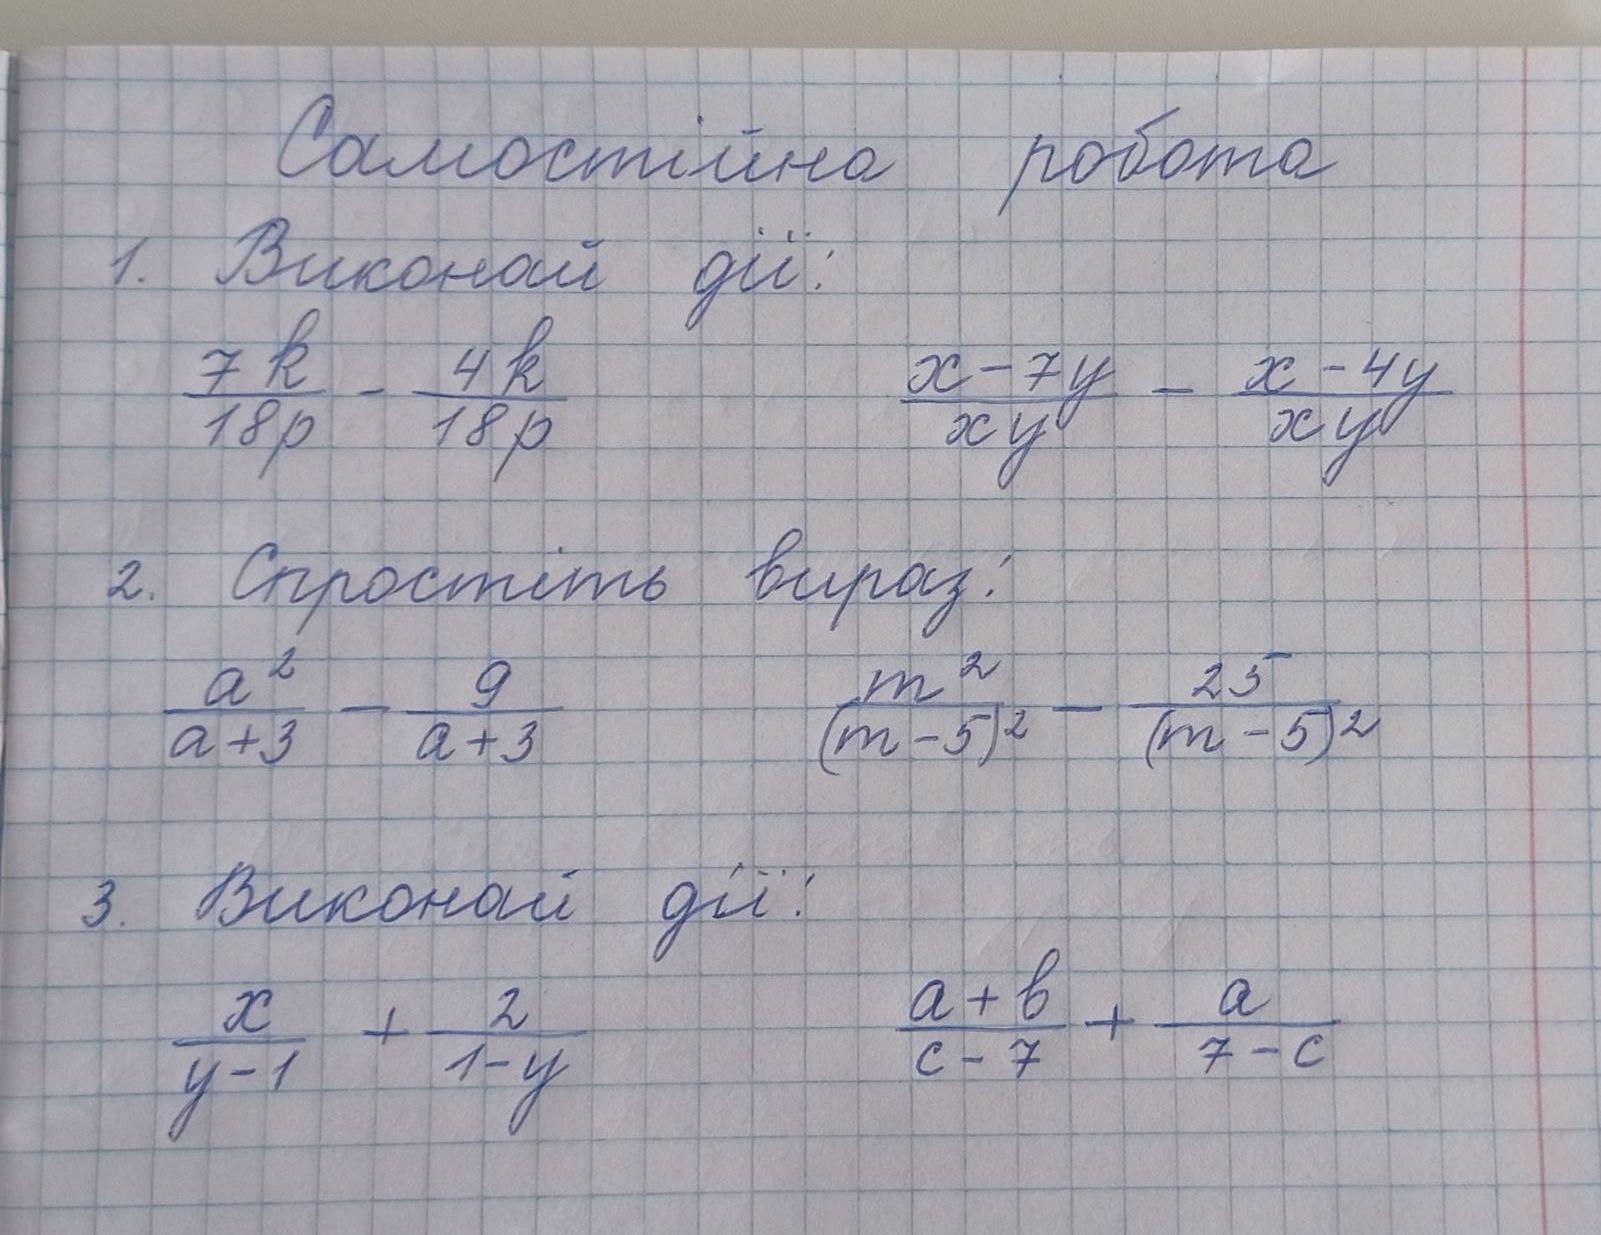 Самостійна робота
1. Виконай дії:
7k/18p - 4k/18p    x-7y/xy - x-4y/xy
2. Спростіть вираз:
a²/a+3 - 9/a+3    m²/(m-5)² - 25/(m-5)²
3. Виконай дії:
x/y-1 + 2/1-y    a+b/c-7 + a/7-c